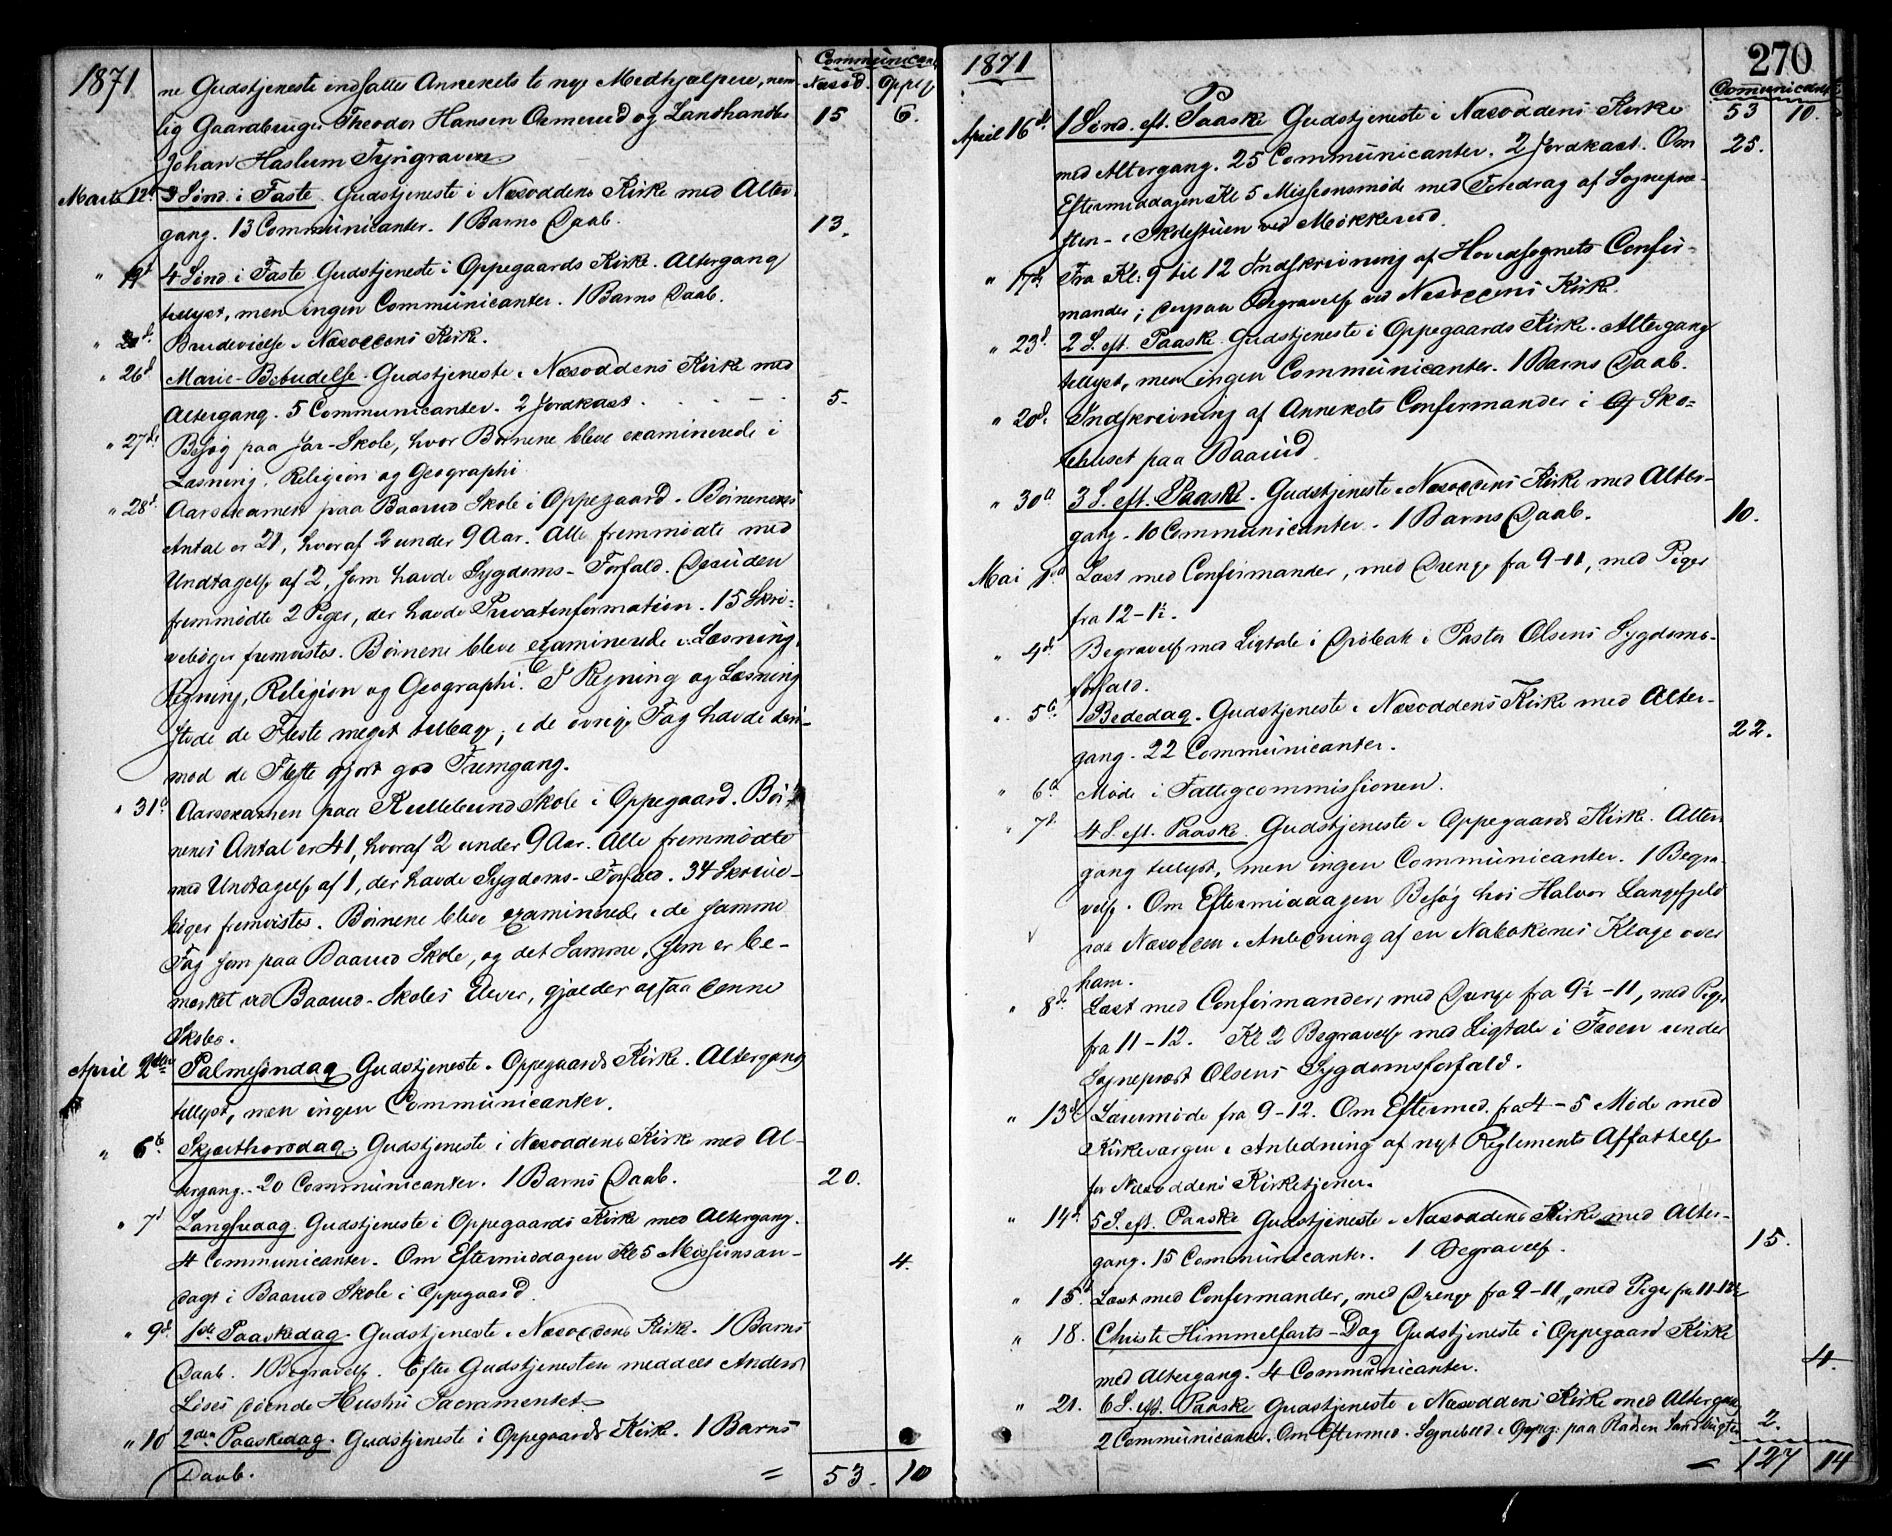 1871
Communican
Næsod. Oppeg
ne Gudstjeneste indsattes Annexets to nye Medhjælpere, nem-
lig Gaardbruger Theodor Hansen Ormerud og Landhandler 15 6.
Johan Haslum Tyrigraven
Marts 12te 3 Sønd. i Faste. Gudstjeneste i Næsoddens Kirke med Alter-
gang. 13 Communicanter. 1 Barns Daab. 13.
" 19d 4 Sønd i Faste Gudstjeneste i Oppegaards Kirke. Altergang
tillyst, men ingen Communicanter. 1 Barns Daab.
" Brudevielse i Næsoddens Kirke.
" 26d Marie-Bebudelse. Gudstjeneste i Næsoddens Kirke med
Altergang. 5 Communicanter. 2 Jordkast. 5.
" 27d. Besøg paa Jar-Skole, hvor Børnene bleve examinerede i
Læsning, Religion og Geographi
" 28d. Aarsexamen paa Baarud Skole i Oppegaard. Børnenes
Antal er 21, hvoraf 2 under 9 Aar. Alle fremmødte med
Undtagelse af 2, som havde Sygdoms-Forfald. Desuden
fremmødte 2 Piger, der havde Privatinformation. 15 Skri-
vebøger fremvistes. Børnene bleve examinerede i Læsning,
Regning, Religion og Geographi. I Regning og Læsning
stode de Fleste meget tilbage; i de øvrige Fag havde deri-
mod de Fleste gjort god Fremgang.
" 31d Aarsexamen paa Kullebund Skole i Oppegaard. Bør-
nenes Antal er 41, hvoraf 2 under 9 Aar. Alle fremmødte
med Undtagelse af 1, der havde Sygdoms-Forfald. 34 Skrive-
bøger fremvistes. Børnene bleve examinerede i de samme
Fag som paa Baarud Skole, og det Samme, som er be-
mærket ved Baarud-Skoles Elever, gjælder ogsaa denne
Skoles.
April 2den Palmesøndag Gudstjeneste i Oppegaards Kirke. Altergang
tillyst, men ingen Communicanter.
" 6te Skjærthorsdag. Gudstjeneste i Næsoddens Kirke med Al-
tergang. 20 Communicanter. 1 Barns Daab. 20.
" 7d Langfredag. Gudstjeneste i Oppegaards Kirke med Altergang.
4 Communicanter. Om Eftermiddagen Kl 5 Missionsan- 4.
dagt i Baarud Skole i Oppegaard.
" 9d. 1ste Paaskedag. Gudstjeneste i Næsoddens Kirke. 1 Barns
Daab. 1 Begravelse. Efter Gudstjenesten meddeelt Anders
Lises døende Hustru Sacramentet.
" 10 2den Paaskedag. Gudstjeneste i Oppegaards Kirke. 1 Barns
Daab. = 53. 10
1871
270
Communicant
53 10.
April 16d. 1 Sønd. eft. Paaske Gudstjeneste i Næsoddens Kirke
med Altergang. 25 Communicanter. 2 Jordkast. Om 25.
Eftermiddagen Kl 5 Missionsmøde med Foredrag af Sognepræ-
sten i Skolestuen ved Mökkerud.
" 17d. Fra Kl. 9 til 12 Indskrivning af Hovedsognets Confir-
mander; derpaa Begravelse ved Næsoddens Kirke.
" 23d. 2 S. eft. Paaske. Gudstjeneste i Oppegaards Kirke. Altergang
tillyst, men ingen Communicanter. 1 Barns Daab.
" 20d. Indskrivning af Annexets Confirmander i Sko-
lehuset paa Baarud.
" 30d 3 S. eft. Paaske. Gudstjeneste i Næsoddens Kirke med Alter-
gang. 10 Communicanter. 1 Barns Daab. 10.
Mai Læst med Confirmander, med Drenge fra 9-11, med Piger
fra 12-1½.
" 4d. Begravelse med Ligtale i Drøbak i Pastor Olsens Sygdoms-
forfald.
" 5te. Bededag. Gudstjeneste i Næsoddens Kirke med Alter-
gang. 22 Communicanter. 22.
" 6d Møde i Fattigcommissionen.
" 7d. 4 S. eft. Paaske. Gudstjeneste i Oppegaards Kirke. Alter-
gang tillyst, men ingen Communicanter. 1 Begra-
velse. Om Eftermiddagen Besøg hos Halvor Langefjeld
paa Næsodden i Anledning af en Nabokones Klage over
ham.
" 8d. Læst med Confirmander, med Drenge fra 9½-11, med Piger
fra 11-12. Kl 2 Begravelse med Ligtale i under
Sognepræst Olsens Sygdomsforfald.
" 13de Lærermøde fra 9-12. Om Eftermed. fra 4-5 Møde med
Kirkevergen i Anledning af nyt Reglements Affattelse
for Næsoddens Kirketjener.
" 14d. 5 S. eft. Paaske Gudstjeneste i Næsoddens Kirke med Alter-
gang. 15 Communicanter. 1 Begravelse. 15.
" 15d Læst med Confirmander, med Drenge fra 9-11, med Piger fra 11-12½
" 18. Christi Himmelfarts-Dag Gudstjeneste i Oppegaard Kirke
med Altergang. 4 Communicanter. 4.
" 21. 6 S. eft. Paaske Gudstjeneste i Næsoddens Kirke med Altergang
2 Communicanter. Om Eftermed. i Oppeg. paa 2.
127 14